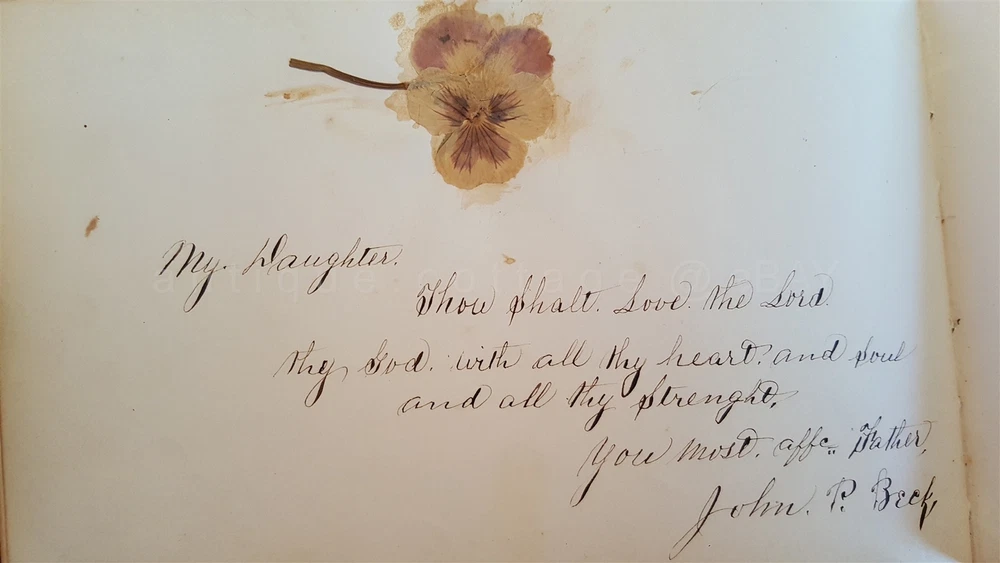 My. Daughter.
Thou Shalt. Love. the Lord.
thy God. with all thy heart. and Soul
and all thy Strenght.
You most. affc. Father,
John. P. Beck,